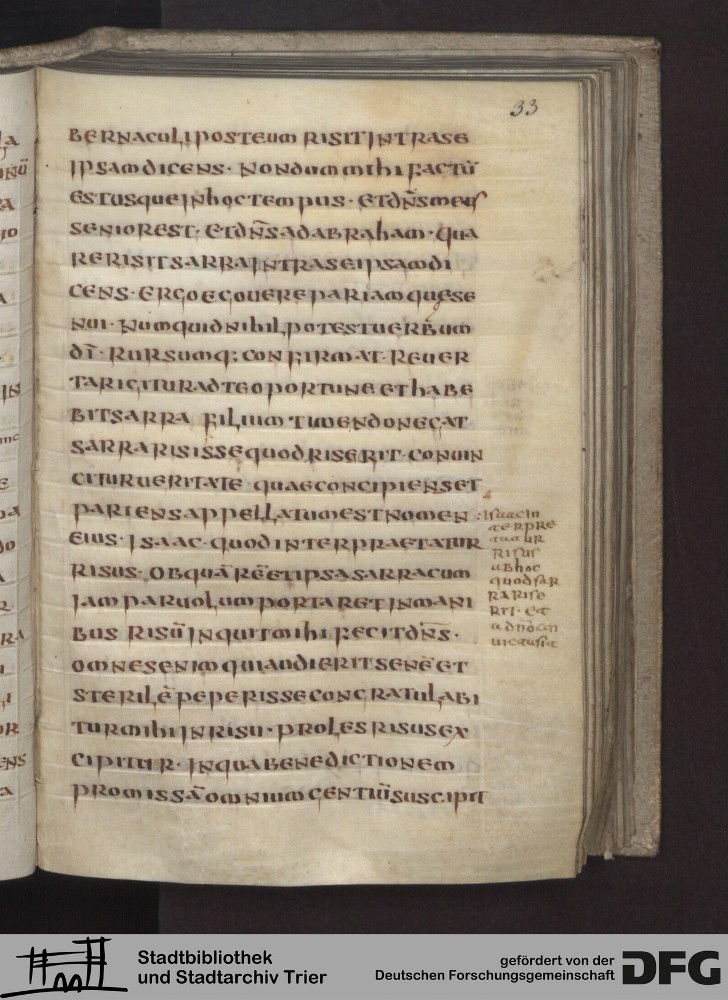 33
BERNACULI POSTEUM RISIT INTRA SE
IPSAM DICENS· NONDUM MIHI FACTŪ
EST USQUE IN HOC TEMPUS· ET DN̄S MEUS
SENIOR EST· ET DN̄S AD ABRAHAM· QUA
RE RISIT SARRA INTRA SE IPSAM DI
CENS· ERGO EGO UERE PARIAM QUE SE
NUI· NUMQUID NIHIL POTEST UERBUM
DĪ· RURSUMQ; CONFIRMAT· REUER
TAR IGITUR AD TE OPORTUNE ET HABE
BIT SARRA FILIUM TIMENDO NEGAT
SARRA RISISSE QUOD RISERIT· CONUIN
CITUR UERITATE QUAE CONCIPIENS ET
PARIENS APPELLATUM EST NOMEN
EIUS· ISAAC· QUOD INTERPRAETATUR
RISUS· OB QUĀ RĒ ET IPSA SARRA CUM
IAM PARUOLUM PORTARET IN MANI
BUS RISŪ INQUIT MIHI FECIT DN̄S·
OMNES ENIM QUI AUDIERIT SENĒ ET
STERILĒ PEPERISSE CONGRATULABI
TUR MIHI IN RISU· PROLES RISUS EX
CIPITUR· IN QUA BENEDICTIONEM
PROMISSĀ OMNIUM GENTIŪ SUSCIPIT
Isaac in
terpre
tatur
risus
ab hoc
quod sar
ra rise
rit· et
Stadtbibliothek
und Stadtarchiv Trier
gefördert von der
Deutschen Forschungsgemeinschaft
DFG